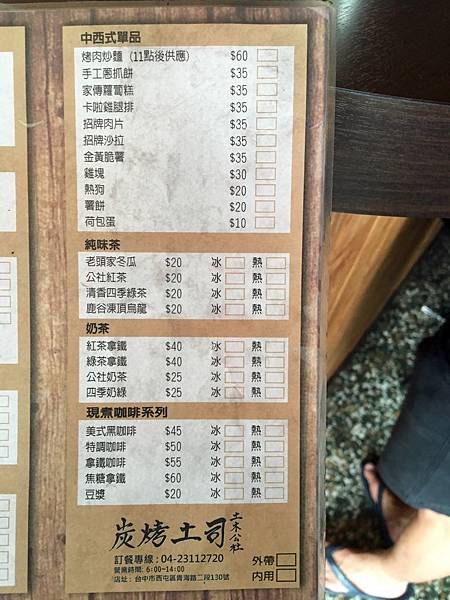 中西式單品
烤肉炒麵 (11點後供應) $60
手工蔥抓餅 $35
家傳蘿蔔糕 $35
卡啦雞腿排 $35
招牌肉片 $35
招牌沙拉 $35
金黃脆薯 $35
雞塊 $30
熱狗 $20
薯餅 $20
荷包蛋 $10
純味茶
老頭家冬瓜 $20 冰 熱
公社紅茶 $20 冰 熱
清香四季綠茶 $20 冰 熱
鹿谷凍頂烏龍 $20 冰 熱
奶茶
紅茶拿鐵 $40 冰 熱
綠茶拿鐵 $40 冰 熱
公社奶茶 $25 冰 熱
四季奶綠 $25 冰 熱
現煮咖啡系列
美式黑咖啡 $45 冰 熱
特調咖啡 $50 冰 熱
拿鐵咖啡 $55 冰 熱
焦糖拿鐵 $60 冰 熱
豆漿 $20 冰 熱
炭烤土司 土木公社
訂餐專線:04-23112720 外帶
營業時間: 6:00~14:00
店址: 台中市西屯區青海路二段130號 內用